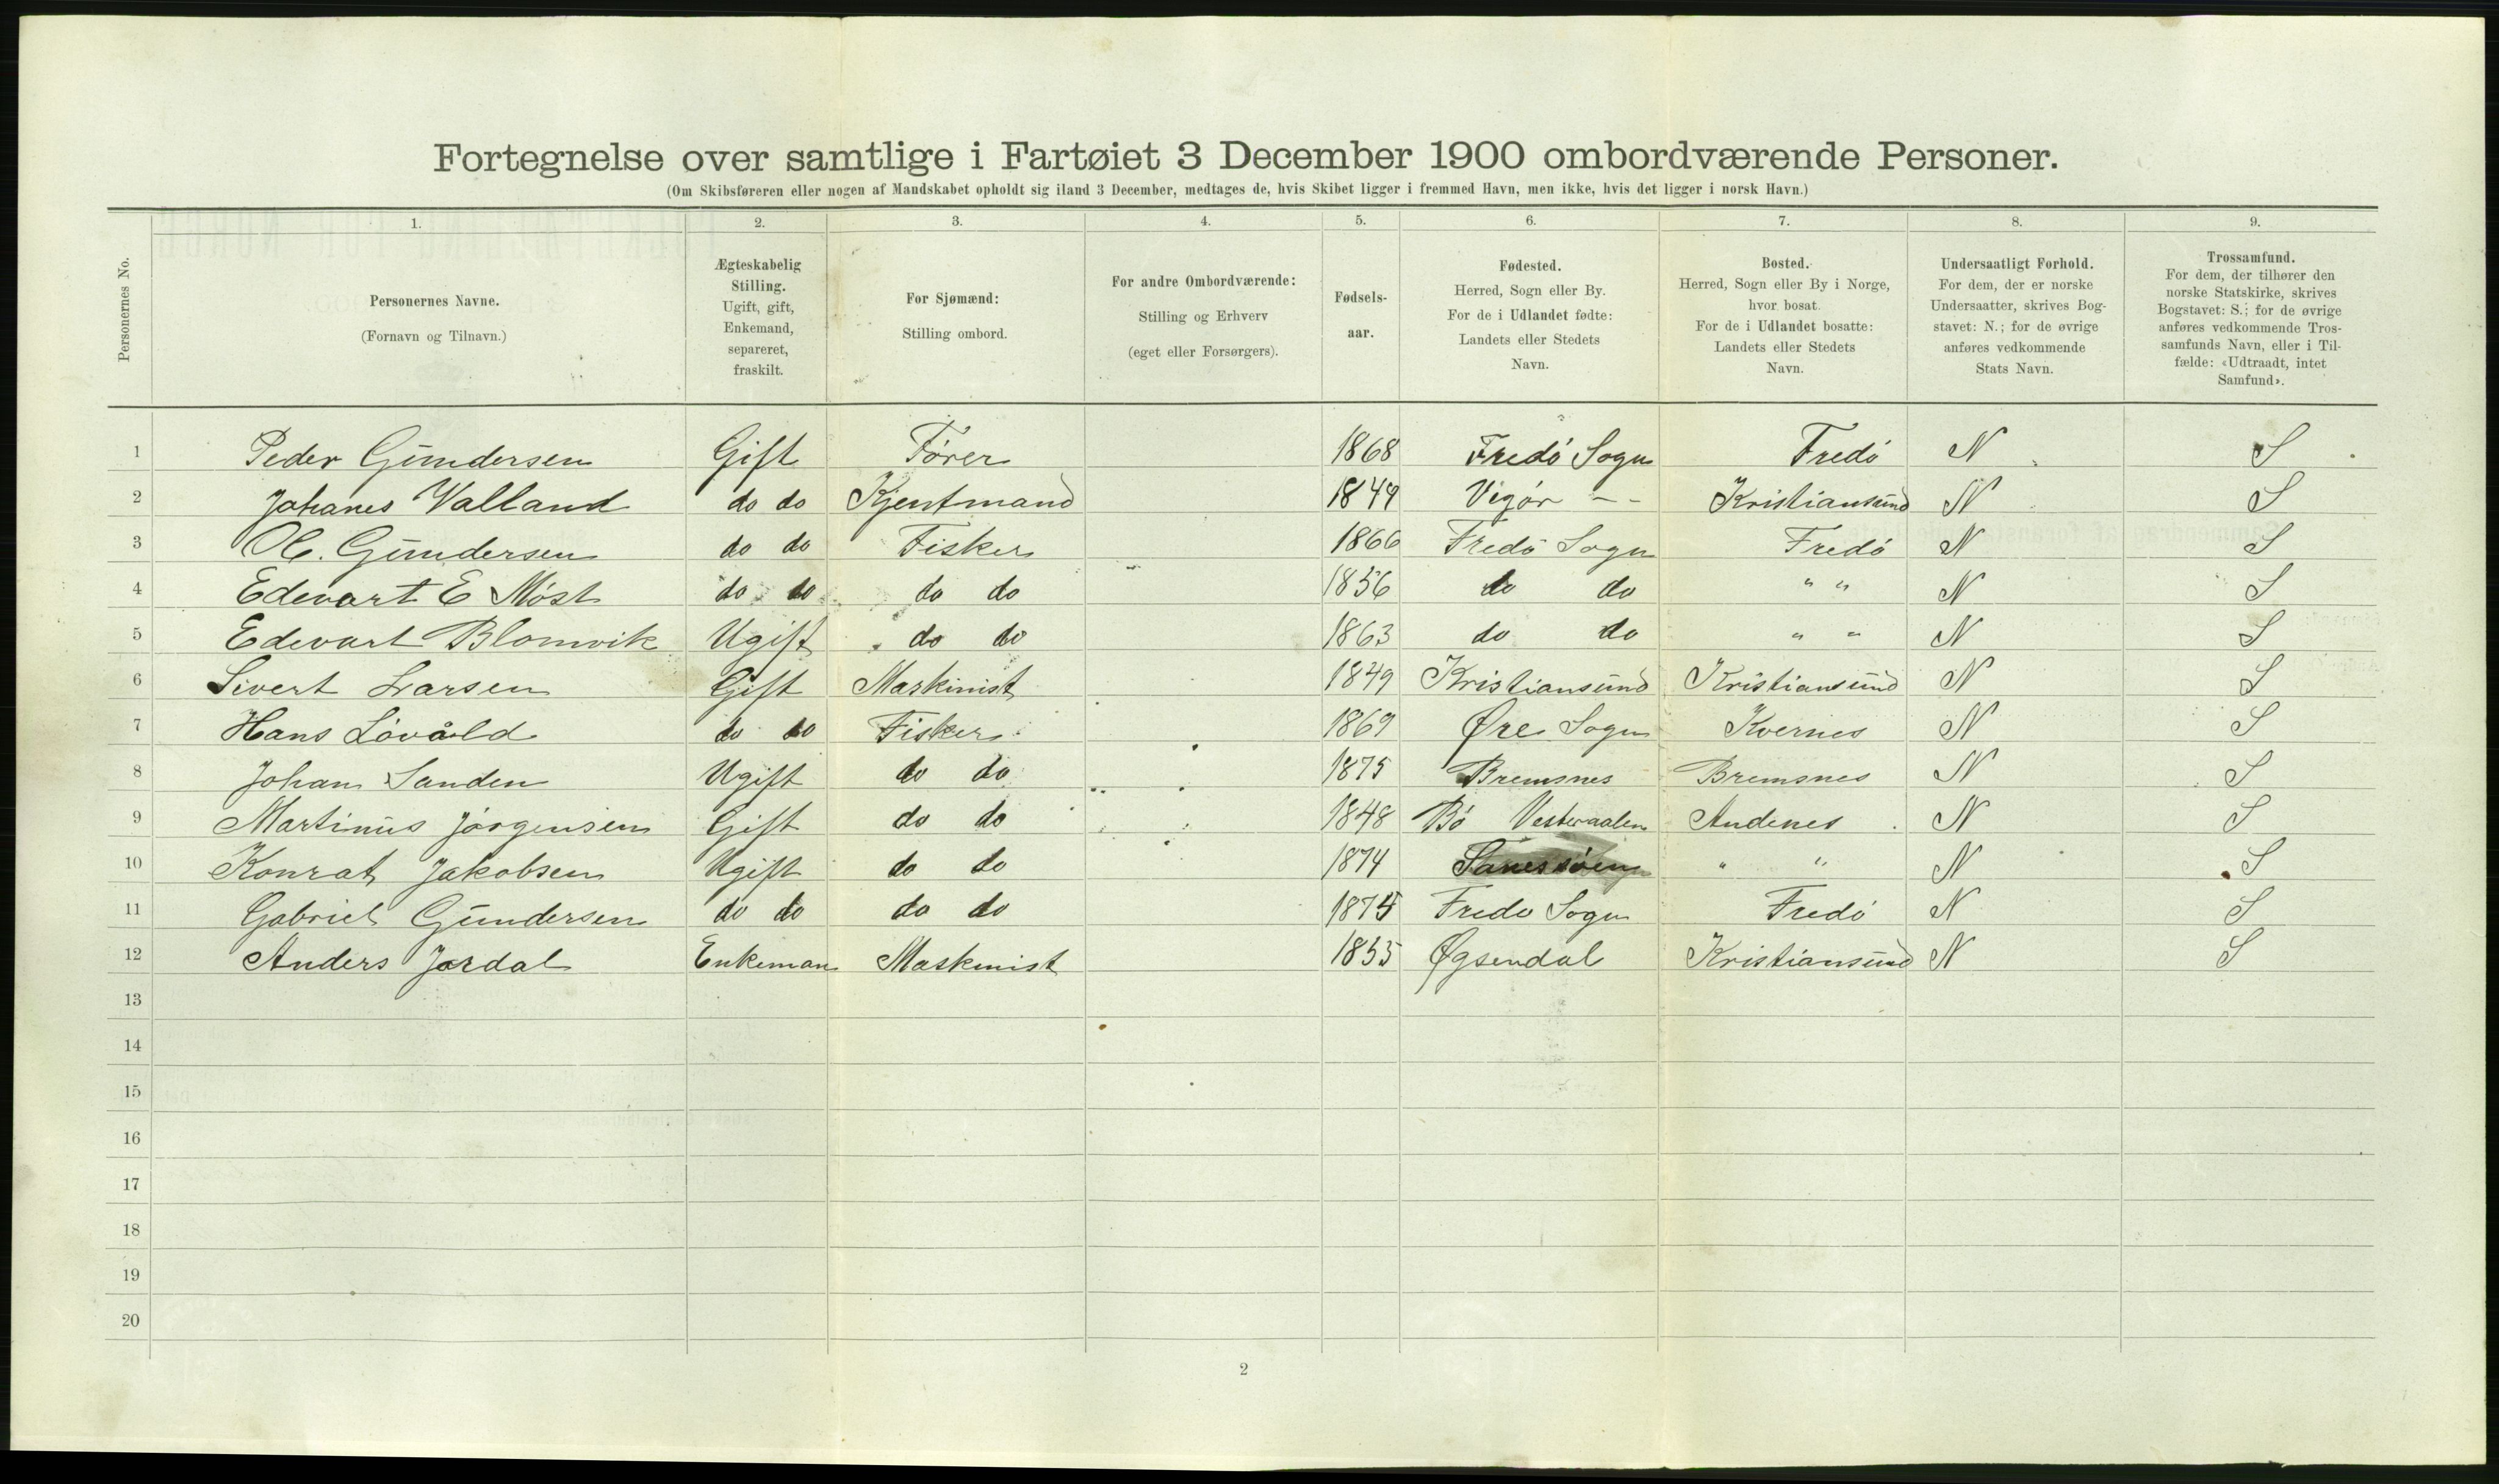 Fortegnelse over samtlige i Fartøiet 3 December 1900 ombordværende Personer.
(Om Skibsføreren eller nogen af Mandskabet opholdt sig iland 3 December, medtages de, hvis Skibet ligger i fremmed Havn, men ikke, hvis det ligger i norsk Havn.)
Personernes No.
1.
Personernes Navne.
(Fornavn og Tilnavn.)
2.
Ægteskabelig
Stilling.
Ugift, gift,
Enkemand,
separeret,
fraskilt.
3.
For Sjømænd:
Stilling ombord.
4.
For andre Ombordværende:
Stilling og Erhverv
(eget eller Forsørgers).
5.
Fødsels-
aar.
6.
Fødested.
Herred, Sogn eller By.
For de i Udlandet fødte:
Landets eller Stedets
Navn.
7.
Bosted.
Herred, Sogn eller By i Norge,
hvor bosat.
For de i Udlandet bosatte:
Landets eller Stedets
Navn.
8.
Undersaatligt Forhold.
For dem, der er norske
Undersaatter, skrives Bog-
stavet: N.; for de øvrige
anføres vedkommende
Stats Navn.
9.
Trossamfund.
For dem, der tilhører den
norske Statskirke, skrives
Bogstavet: S.; for de øvrige
anføres vedkommende Tros-
samfunds Navn, eller i Til-
fælde: «Udtraadt, intet
Samfund».
1 Peder Gundersen Gift Fører 1868 Fredö Sogn Fredö N S
2 Johanes Valland do do Kjentmand 1849 Vigör - - Kristiansund N S
3 Ol. Gundersen do do Fisker 1866 Fredö Sogn Fredö N S
4 Edevart E Möst do do do do 1856 do do " " N S
5 Edevart Blomvik Ugift do do 1863 do do " " N S
6 Sivert Larsen Gift Maskinist 1849 Kristiansund Kristiansund N S
7 Hans Lövåld do do Fisker 1869 Øre Sogn Kvernes N S
8 Johan Sanden Ugift do do 1875 Bremsnes Bremsnes N S
9 Martinus Jörgensen Gift do do 1848 Bö Vesteraalen Andenes N S
10 Konrat Jakobsen Ugift do do 1874 " " N S
11 Gabriel Gundersen do do do do 1875 Fredo Sogn Fredö N S
12 Anders Jordal Enkeman Maskinist 1855 Øgsendal Kristiansund N S
13
14
15
16
17
18
19
20
2